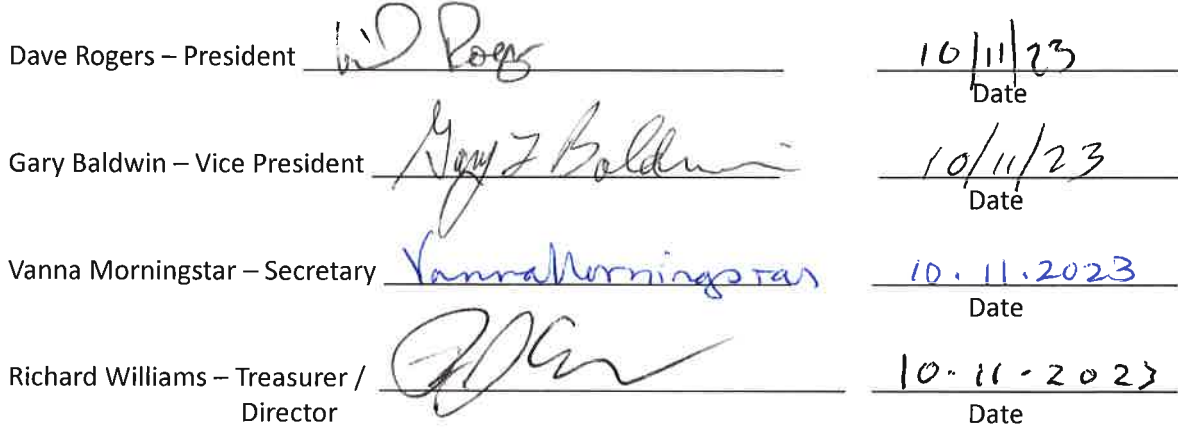 Dave Rogers – President Rogers 10/11/23
Date
Gary Baldwin – Vice President Gary F Baldwin 10/11/23
Date
Vanna Morningstar – Secretary Vanna Morningstar 10.11.2023
Date
Richard Williams – Treasurer / 10-11-2023
Director Date